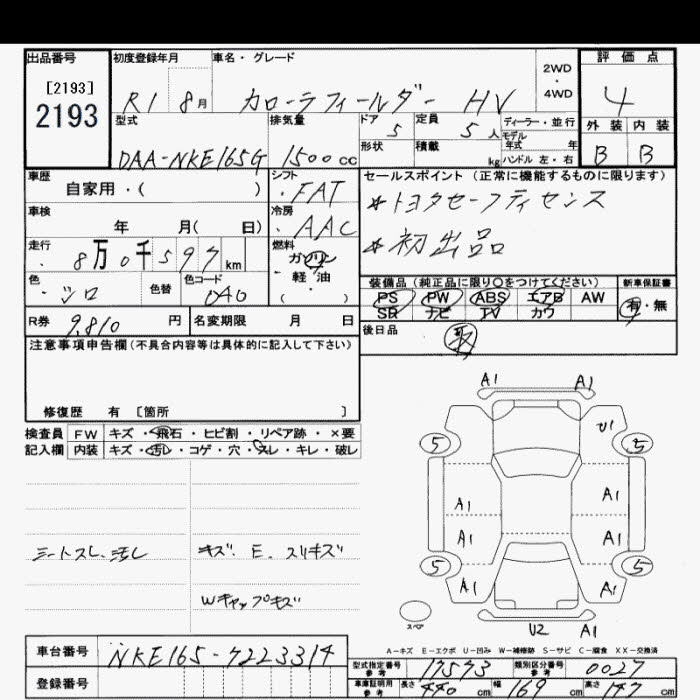 出品番号
[2193]
2193
初度登録年月
R1 8月
車名・グレード
カローラフィールダー HV
2WD
・
4WD
評価点
4
外装 内装
B B
型式
DAA-NKE165G
排気量
1500cc
ドア
5
定員
5人
ディーラー・並行
モデル
年式 年
形状
積載
kg
ハンドル 左・右
車歴
自家用・( )
シフト
・FAT
車検
年 月( 日)
冷房
・AAC
走行
・8万0千597km
燃料
ガソリン
・軽・油
( ・ )
色
・シロ
色替
色コード
040
R券 9,810円
名変期限 月 日
セールスポイント(正常に機能するものに限ります)
☆トヨタセーフティセンス
☆初出品
装備品(純正品に限り○をつけてください)
PS PW ABS エアB AW
SR ナビ TV カワ
新車保証書
有・無
後日品
取
注意事項申告欄(不具合内容等は具体的に記入して下さい)
修復歴 有 [箇所 ]
検査員 FW キズ・飛石・ヒビ割・リペア跡・×要
記入欄 内装 キズ・汚レ・コゲ・穴・スレ・キレ・破レ
シートスレ、汚レ
キズ、E、スリキズ
Wキャップキズ
A1 A1
U1
5 5
A1 A1
A1 A1
5 5
A1 A1
スペア
U2 A1
A-キズ E-エクボ U-凹み W-補修跡 S-サビ C-腐食 XX-交換済
車台番号 NKE165-7223314
登録番号
型式指定番号 参考 17573
類別区分番号 参考 0027
車庫証明用 参考 長さ 440cm 幅 169cm 高さ 147cm